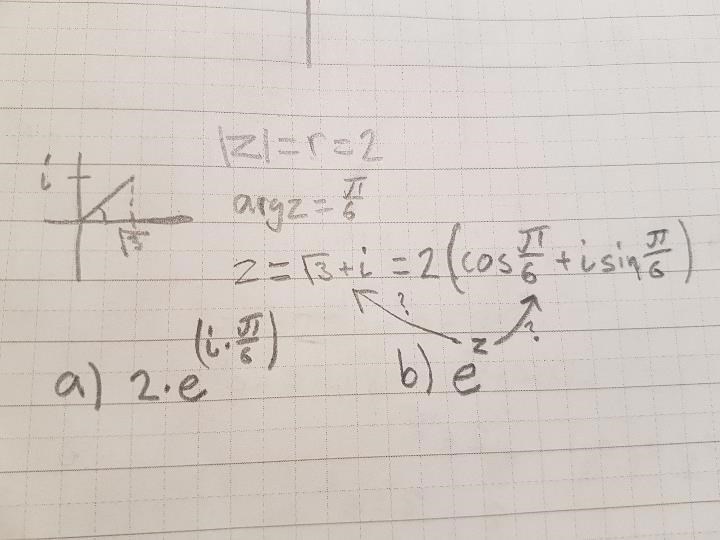 |z| = r = 2
i
arg z = π/6
√3
z = √3 + i = 2 (cos π/6 + i sin π/6)
? ?
a) 2 · e^(i · π/6)
b) e^z